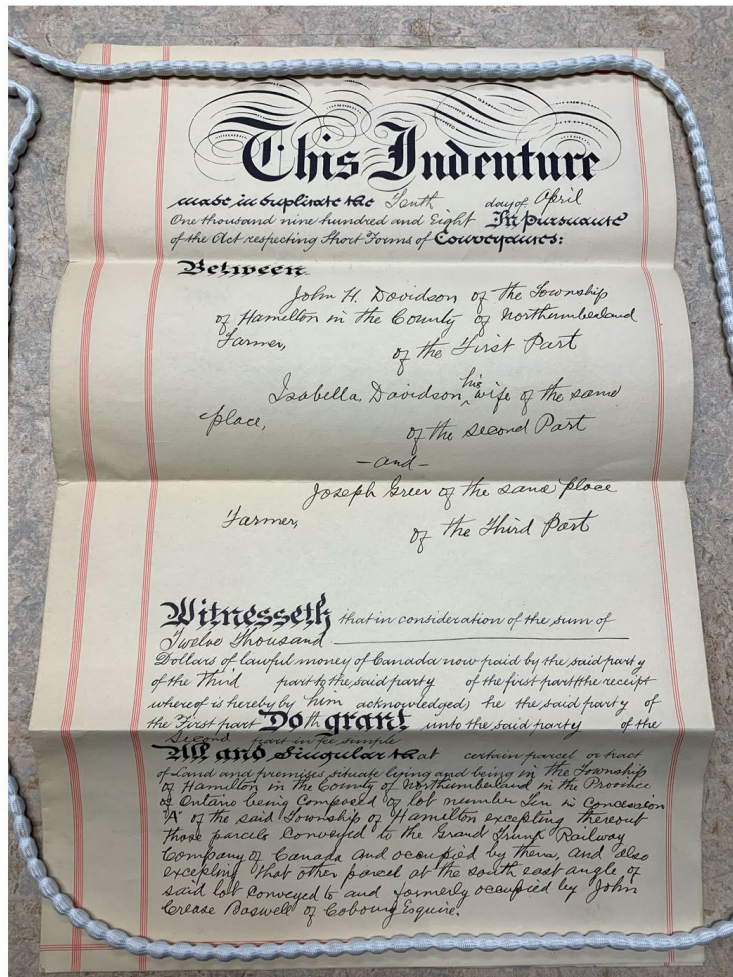 This Indenture
made in duplicate the Tenth day of April
One thousand nine hundred and Eight In Pursuance
of the Act respecting Short Forms of Conveyances:
Between
John H. Davidson of the Township
of Hamilton in the County of Northumberland
Farmer, of the First Part
Isabella Davidson his wife of the same
place, of the second Part
-and-
Joseph Greer of the same place
Farmer, of the Third Part
Witnesseth that in consideration of the sum of
Twelve Thousand
Dollars of lawful money of Canada now paid by the said party
of the Third part to the said party of the first part (the receipt
whereof is hereby by him acknowledged) he the said party of
the First part Doth grant unto the said party of the
Second part in fee simple
All and Singular that certain parcel or tract
of Land and premises situate lying and being in the Township
of Hamilton in the County of Northumberland in the Province
of Ontario being Composed of lot number Ten in Concession
"A" of the said Township of Hamilton excepting thereout
those parcels conveyed to the Grand Trunk Railway
Company of Canada and occupied by them, and also
excepting that other parcel at the south east angle of
said lot conveyed to and formerly occupied by John
Crease Boswell of Cobourg Esquire.